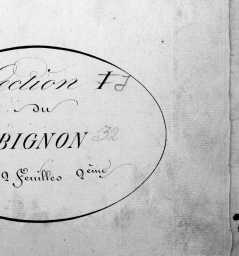 ction I J
du
BIGNON 32
2 Feuilles 2ème